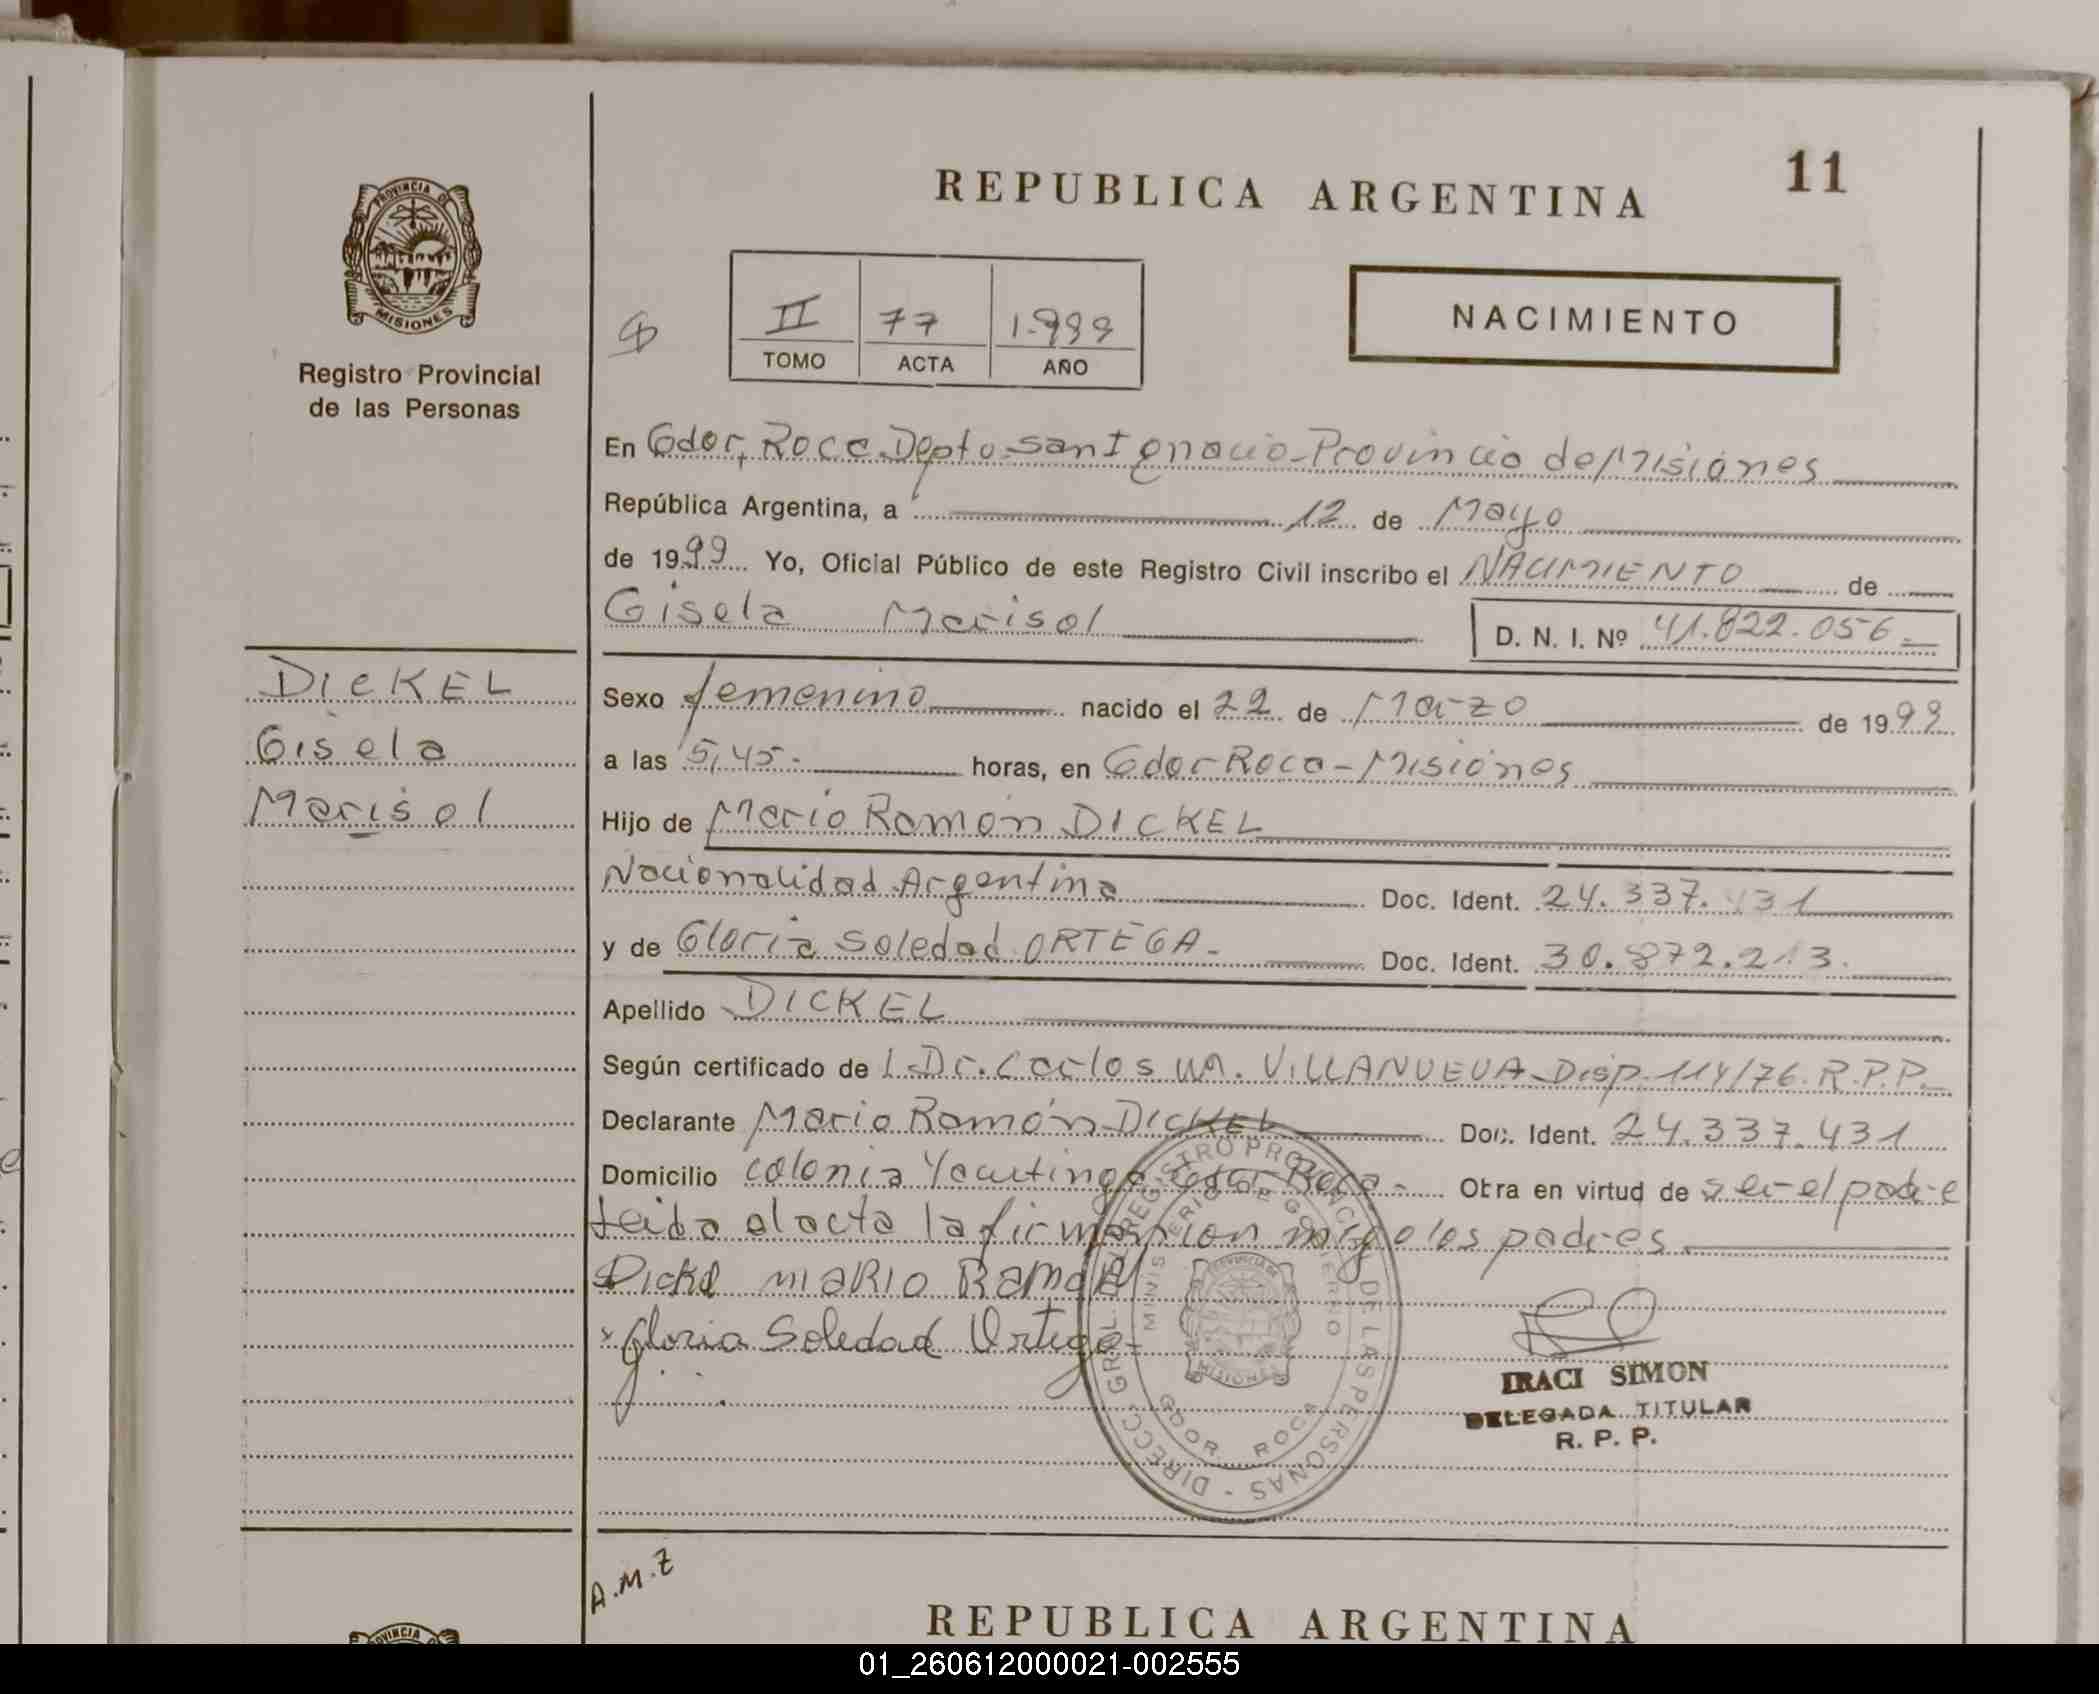 REPUBLICA ARGENTINA
11
PROVINCIA DE
MISIONES
Registro Provincial
de las Personas
II 77 1.999
TOMO ACTA AÑO
NACIMIENTO
En Gdor, Roca Depto San Ignacio - Provincia de Misiones
República Argentina, a 12 de Mayo
de 1999 Yo, Oficial Público de este Registro Civil inscribo el NACIMIENTO de
Gisela Marisol
D. N. I. Nº 41.822.056.
DICKEL
Gisela
Marisol
Sexo femenino nacido el 22 de Marzo de 1999
a las 5,45. horas, en Gdor Roca - Misiones
Hijo de Mario Ramón DICKEL
Nacionalidad Argentina Doc. Ident. 24.337.431
y de Gloria Soledad ORTEGA - Doc. Ident. 30.872.213.
Apellido DICKEL
Según certificado de l Dr. Carlos M. VILLANUEVA Disp. 114/76. R.P.P.
Declarante Mario Ramón DICKEL Doc. Ident. 24.337.431
Domicilio colonia Yacutinga Gdor Roca - Otra en virtud de ser el padre
Leida el acta la firman conmigo los padres
Dickel MARIO RAMON
x Gloria Soledad Ortega
DIRECC. GRAL. DEL REGISTRO PROVINCIAL DE LAS PERSONAS
MINISTERIO DE GOBIERNO
PROVINCIA DE
MISIONES
GDOR. ROCA
IRACI SIMON
DELEGADA TITULAR
R. P. P.
A.M.Z
REPUBLICA ARGENTINA
01_260612000021-002555